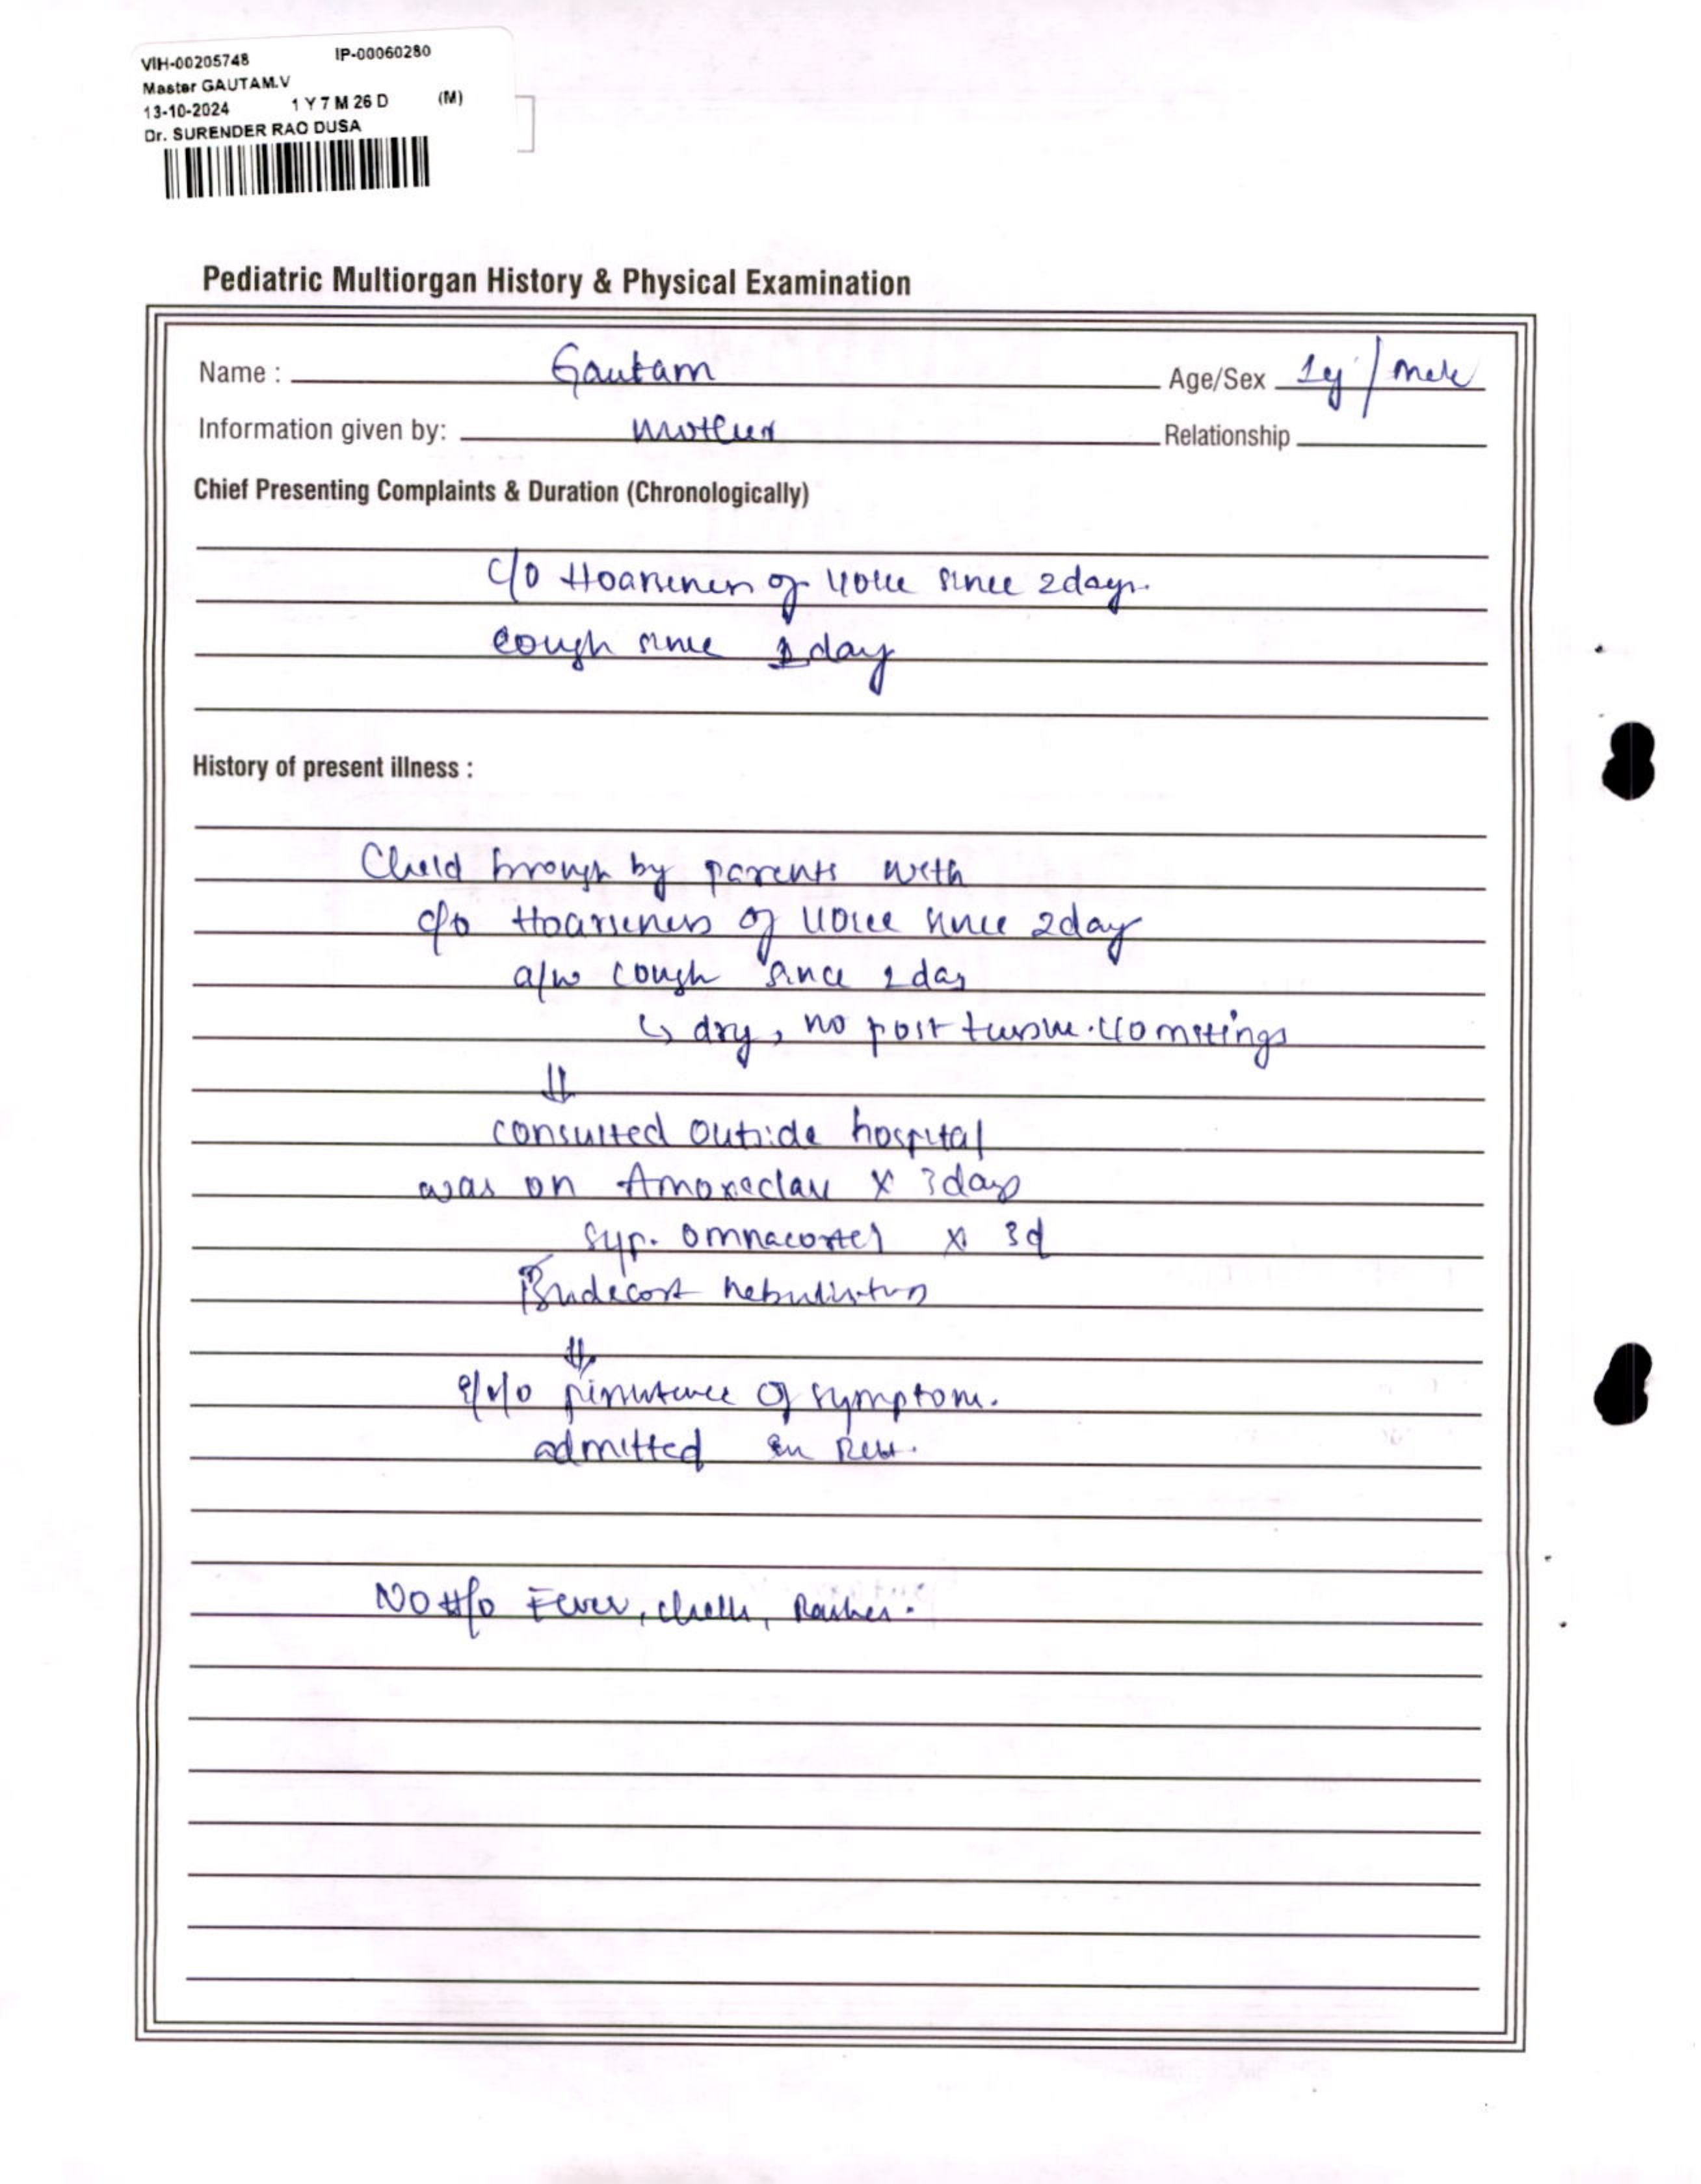 VIH-00205748 IP-00060280
Master GAUTAM.V
13-10-2024 1 Y 7 M 26 D (M)
Dr. SURENDER RAO DUSA
Pediatric Multiorgan History & Physical Examination
Name : Gautam Age/Sex 1y / Male
Information given by: Mother Relationship
Chief Presenting Complaints & Duration (Chronologically)
c/o Hoarseness of voice since 2days.
cough since 1 day
History of present illness :
Child brough by parents with
c/o Hoarseness of voice since 2day
a/w cough since 1 day
↳ dry, no post tussive vomitings
⇓
consulted outside hospital
was on Amoxeclav x 3days
Syp. Omnacortel x 3d
Budecort nebulisation
⇓
persistence of symptom.
admitted in
No H/o Fever, chills, Rashes.